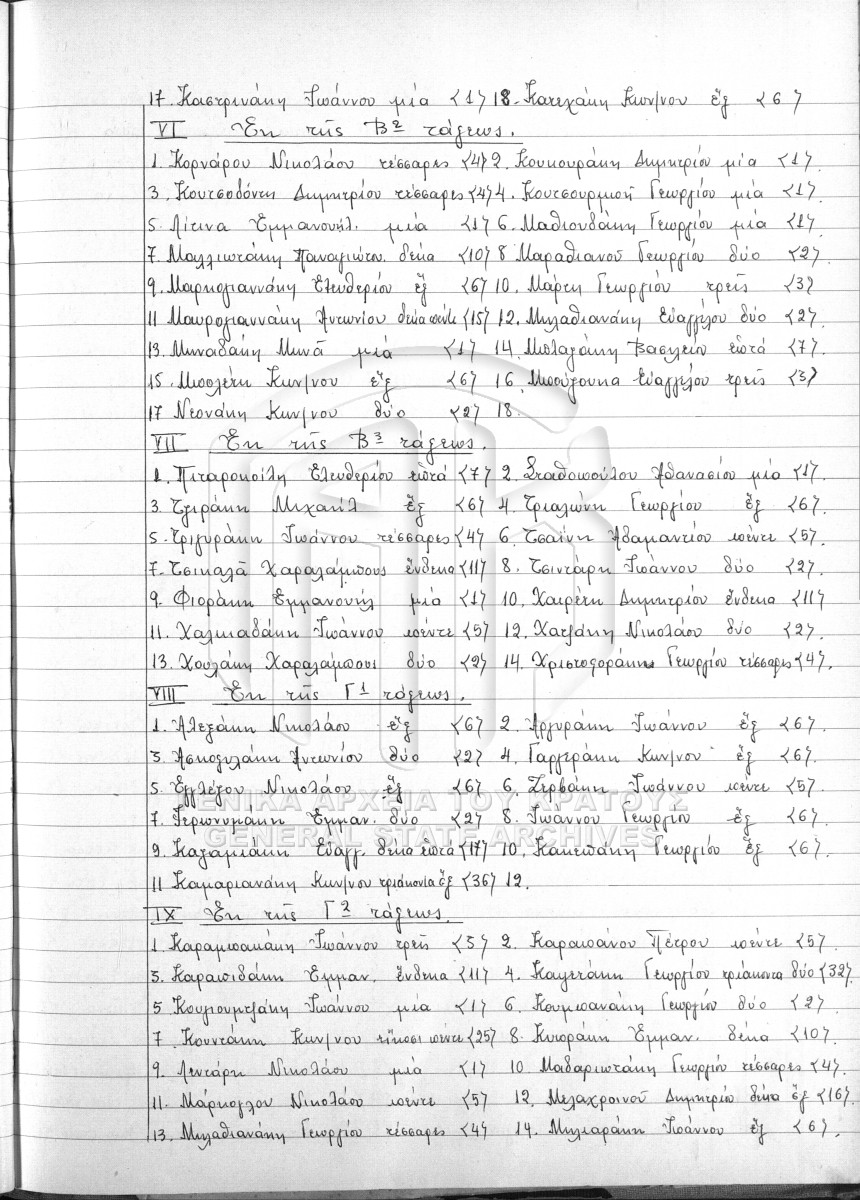 17. Καστρινάκη Ἰωάννου μία <1> 18. Κατεχάκη Κων/νου ἕξ <6>
VI Ἐκ τῆς Β2 τάξεως.
1. Κορνάρου Νικολάου τέσσαρες <4> 2. Κουκουράκη Δημητρίου μία <1>.
3. Κουτσοδόντη Δημητρίου τέσσαρες <4> 4. Κουτσουρμπῆ Γεωργίου μία <1>.
5. Λίτινα Ἐμμανουήλ μία <1> 6. Μαθιουδάκη Γεωργίου μία <1>.
7. Μαλλιωτάκη Παναγιώτου δέκα <10> 8 Μαραθιανοῦ Γεωργίου δύο <2>.
9. Μαρκογιαννάκη Ἐλευθερίου ἕξ <6> 10. Μάρκη Γεωργίου τρεῖς <3>
11 Μαυρογιαννάκη Ἀντωνίου δέκα πέντε <15> 12. Μηλαθιανάκη Εὐαγγέλου δύο <2>.
13. Μηναδάκη Μηνᾶ μία <1> 14. Μπλαζάκη Βασιλείου ἑπτά <7>.
15. Μπολέτη Κων/νου ἕξ <6> 16. Μπούζουκα Εὐαγγέλου τρεῖς <3>
17 Νεονάκη Κων/νου δύο <2> 18.
VII Ἐκ τῆς Β3 τάξεως.
1. Πιταροκοίλη Ἐλευθερίου ἑπτά <7> 2. Σταθοπούλου Ἀθανασίου μία <1>.
3. Τζιράκη Μιχαήλ ἕξ <6> 4. Τριαλώνη Γεωργίου ἕξ <6>.
5. Τριγυράκη Ἰωάννου τέσσαρες <4> 6. Τσαΐνη Ἀδαμαντίου πέντε <5>.
7. Τσικαλᾶ Χαραλάμπους ἕνδεκα <11> 8. Τσιντάρη Ἰωάννου δύο <2>.
9. Φιοράκη Ἐμμανουήλ μία <1> 10. Χαιρέτη Δημητρίου ἕνδεκα <11>
11. Χαλκιαδάκη Ἰωάννου πέντε <5> 12. Χατζάκη Νικολάου δύο <2>.
13. Χουλάκη Χαραλάμπους δύο <2> 14. Χριστοφοράκη Γεωργίου τέσσαρες <4>.
VIII Ἐκ τῆς Γ1 τάξεως.
1. Ἀλεξάκη Νικολάου ἕξ <6> 2. Ἀργυράκη Ἰωάννου ἕξ <6>.
3. Ἀσκοξυλάκη Ἀντωνίου δύο <2> 4. Γαργεράκη Κων/νου ἕξ <6>.
5. Ἐγγλέζου Νικολάου ἕξ <6> 6. Ζερβάκη Ἰωάννου πέντε <5>.
7. Ἱερωνυμάκη Ἐμμαν. δύο <2> 8. Ἰωάννου Γεωργίου ἕξ <6>.
ΓΕΝΙΚΑ ΑΡΧΕΙΑ ΤΟΥ ΚΡΑΤΟΥΣ
GENERAL STATE ARCHIVES
9. Καζαμιάκη Εὐαγγ. δέκα ἑπτά <17> 10. Κακεπάκη Γεωργίου ἕξ <6>.
11 Καμαριανάκη Κων/νου τριάκοντα ἕξ <36> 12.
IX Ἐκ τῆς Γ2 τάξεως.
1. Καραμπακάκη Ἰωάννου τρεῖς <3> 2. Καραπάνου Πέτρου πέντε <5>.
3. Καραπιδάκη Ἐμμαν. ἕνδεκα <11> 4. Καφετάκη Γεωργίου τριάκοντα δύο <32>.
5 Κουγιουμτζάκη Ἰωάννου μία <1> 6. Κουμπανάκη Γεωργίου δύο <2>.
7. Κουντάκη Κων/νου εἴκοσι πέντε <25> 8. Κυτοράκη Ἐμμαν. δέκα <10>.
9. Λεντάρη Νικολάου μία <1> 10. Μαδαριωτάκη Γεωργίου τέσσαρες <4>.
11. Μάρκογλου Νικολάου πέντε <5> 12. Μελαχροινοῦ Δημητρίου δέκα ἕξ <16>.
13. Μηλαθιανάκη Γεωργίου τέσσαρες <4> 14. Μηλιαράκη Ἰωάννου ἕξ <6>.